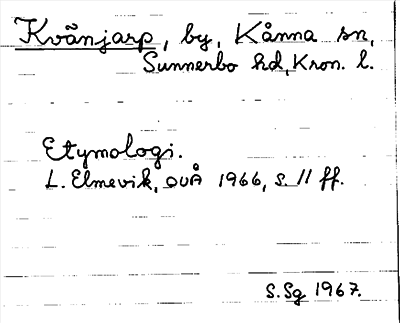 Kvänjarp, by, Kånna sn,
Sunnerbo hd, Kron. l.
Etymologi.
L. Elmevik, OUÅ 1966, s. 11 ff.
S.Sg 1967.